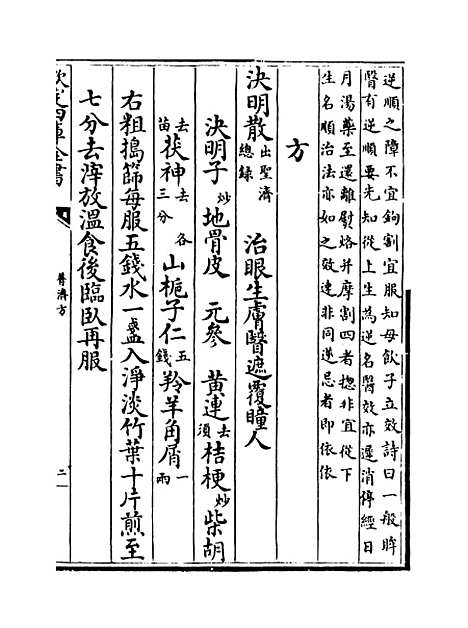 逆順之障不宜鉤割宜服知母飲子立效詩曰一般眸
瞖有逆順要先知從上生為逆名瞖效亦遲消停經日
月湯藥至還離熨烙并摩割四者揔非宜從下
生名順治法亦如之效速非同逆忌者即依依
方
決明散出聖濟總錄 治眼生膚瞖遮覆瞳人
決明子炒地骨皮 元參 黄連去須桔梗炒柴胡
去苗茯神去各三分 山梔子仁五錢羚羊角屑一兩
右粗搗篩每服五錢水一盞入淨淡竹葉十片煎至
七分去滓放温食後臨臥再服
欽定四庫全書
普濟方
二